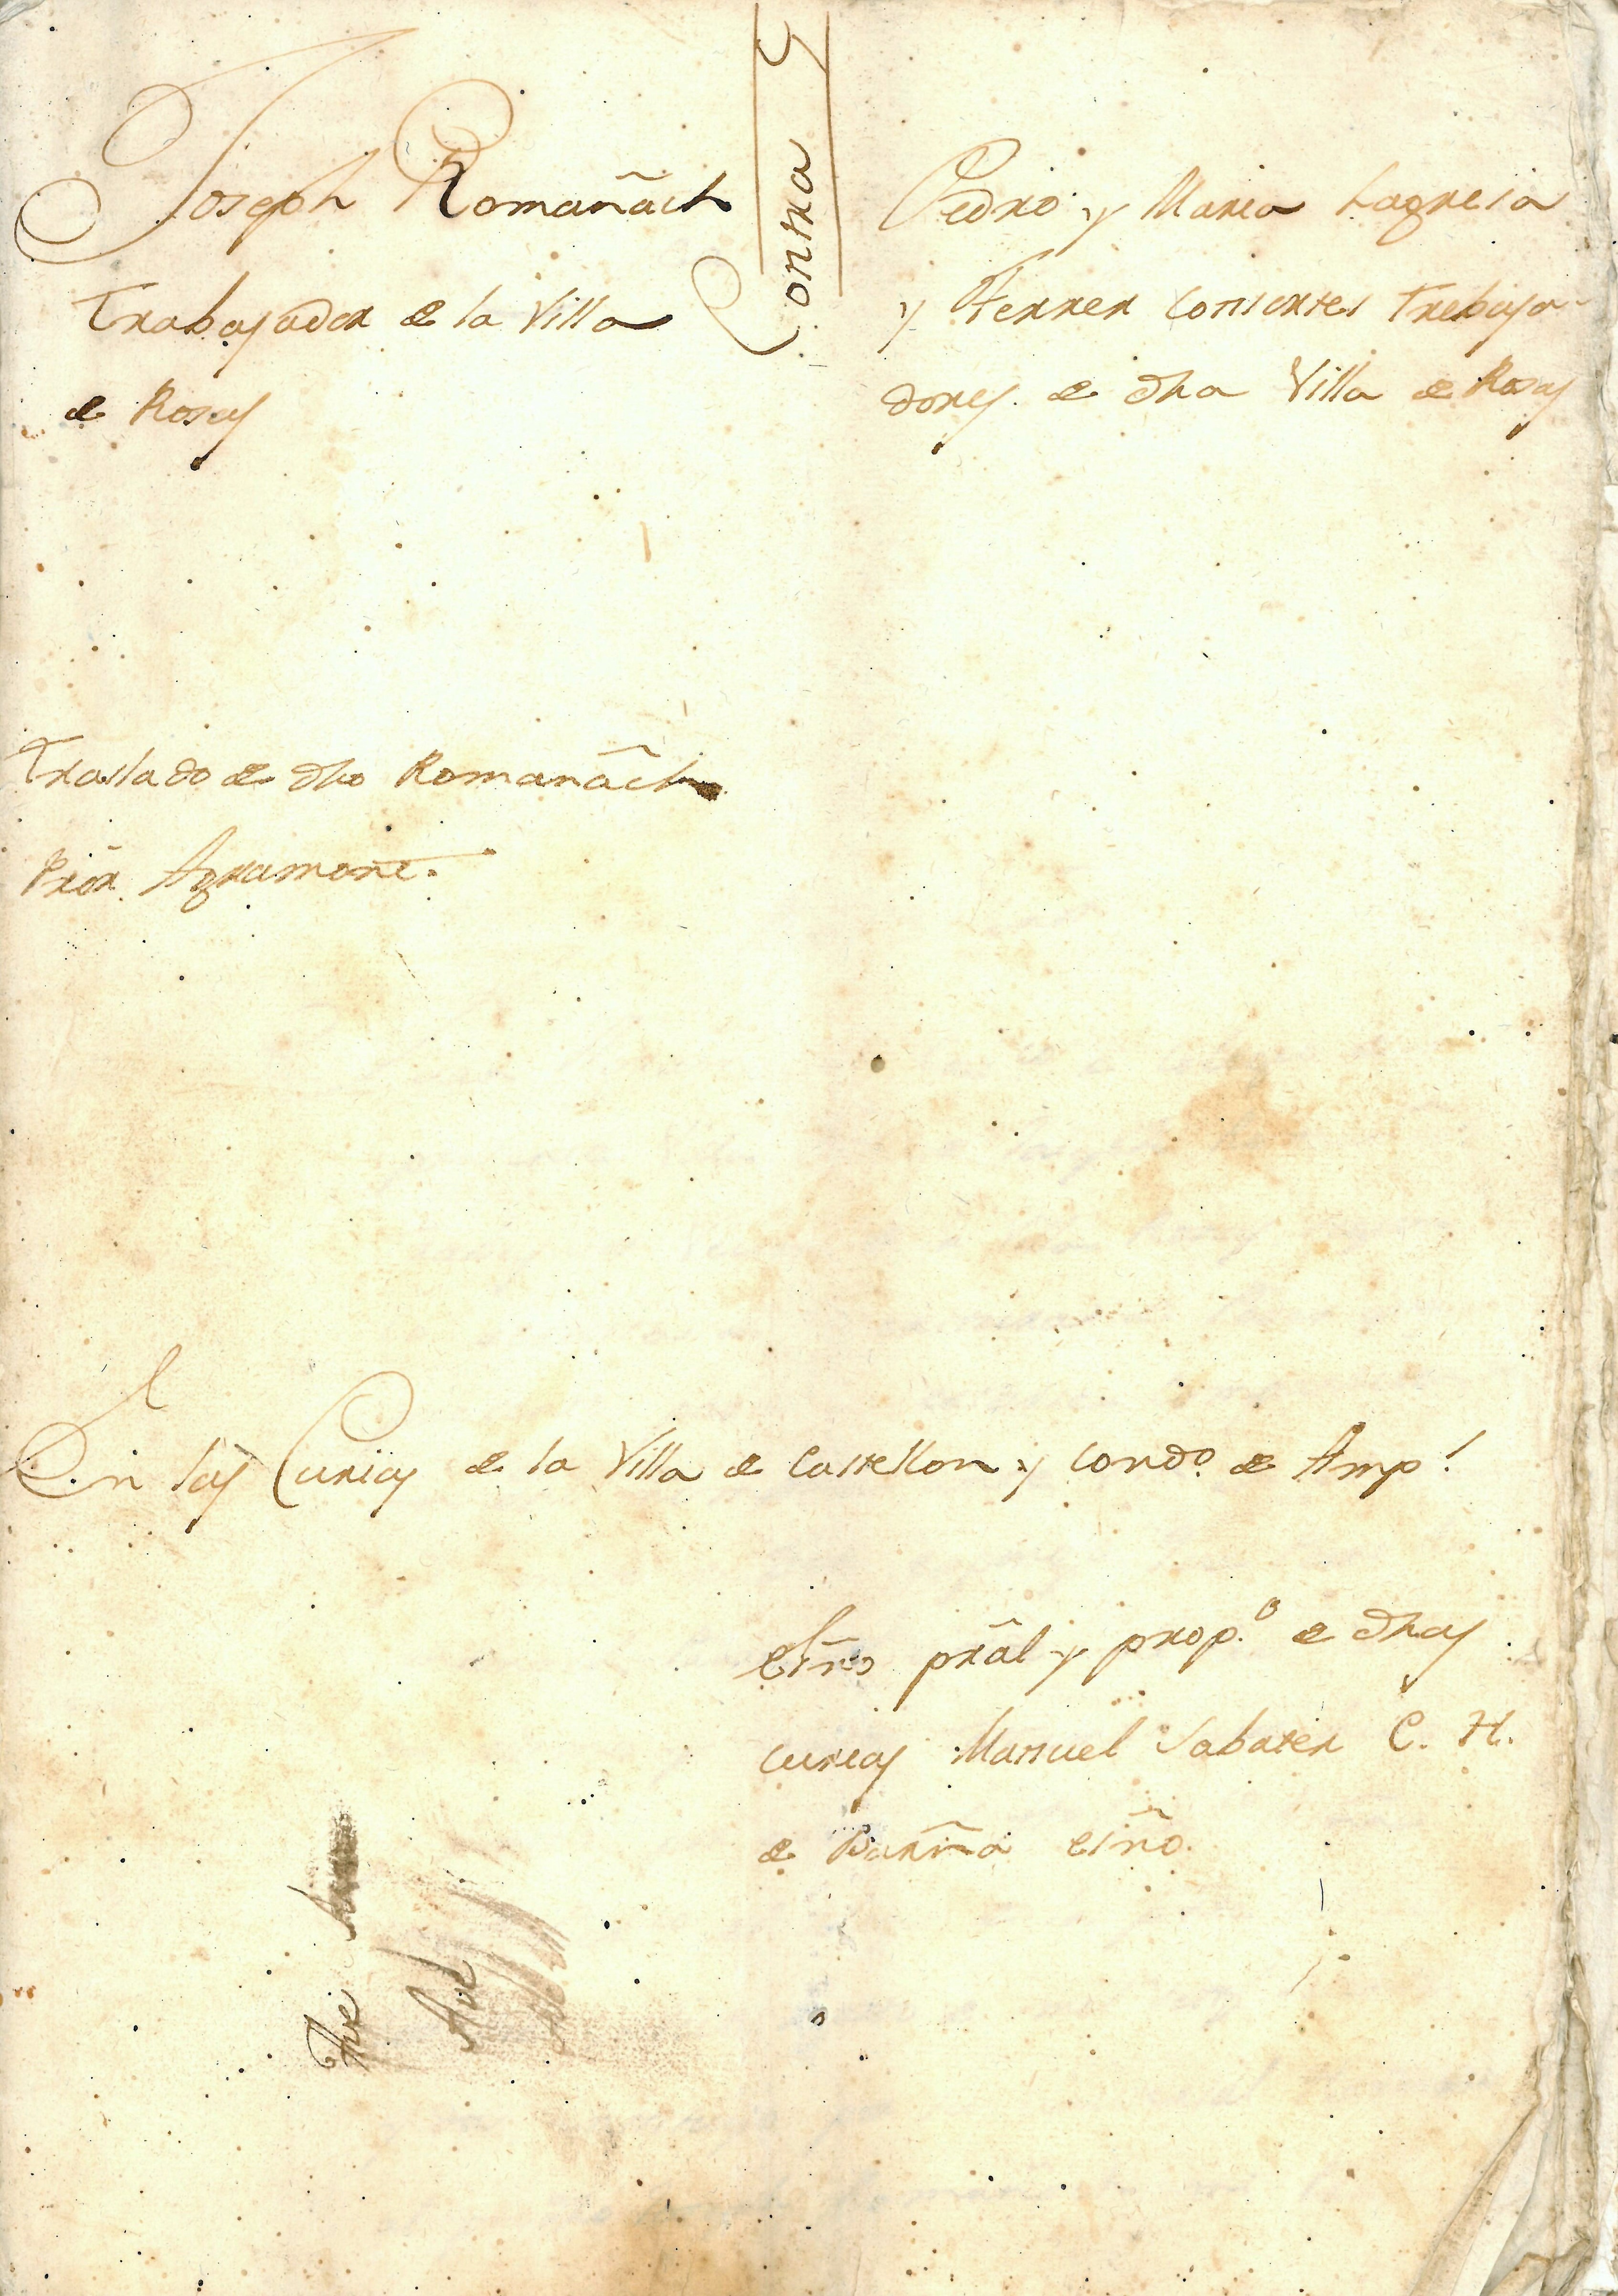 Joseph Romañach
Trabajador de la Villa
de Rosas
Contra
Pedro y Maria Lagresa
y Ferrer consortes Trebaja-
dores de dha Villa de Rosas
Traslado de dho Romañach
Pror. Agramont.
En las Curias de la Villa de Castellon y Condo. de Amp.s
Essno pral y propo. de dhas
curias Manuel Sabater C. H.
de Barna esno.